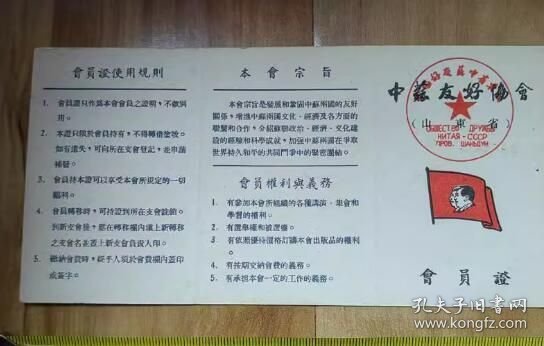 會員證使用規則
1. 會員證只作為本會會員之證明，不做別
用。
2. 本證只限於會員持有，不得轉借塗改。
如有遺失，可向所在支會登記，並申請
補發。
3. 會員持本證可以享受本會所規定的一切
福利。
4. 會員轉移時，可持證到所在支會註銷。
到新支會後，應在轉移欄內填上新轉移
之支會名並蓋上新支會負責人印。
5. 繳納會費時，經手人須於會費欄內蓋印
或簽字。
本會宗旨
本會宗旨是發展和鞏固中蘇兩國的友好
關係，增進中蘇兩國文化、經濟及各方面的
聯繫和合作，介紹蘇聯政治、經濟、文化建設
的經驗和科學成就，加强中蘇兩國在爭取
世界持久和平的共同鬥爭中的緊密團結。
會員權利與義務
1. 有參加本會所組織的各種講演、集會和
學習的權利。
2. 有選舉權和被選權。
3. 有依照優待價格訂購本會出版品的權利
。
4. 有按期交納會費的義務。
5. 有承担本會一定的工作的義務。
中蘇友好協會
（山東省）
ОБЩЕСТВО ДРУЖБЫ
КИТАЯ-СССР
ПРОВ. ШАНЬДУН
會員證
孔夫子旧书网
www.kongfz.com